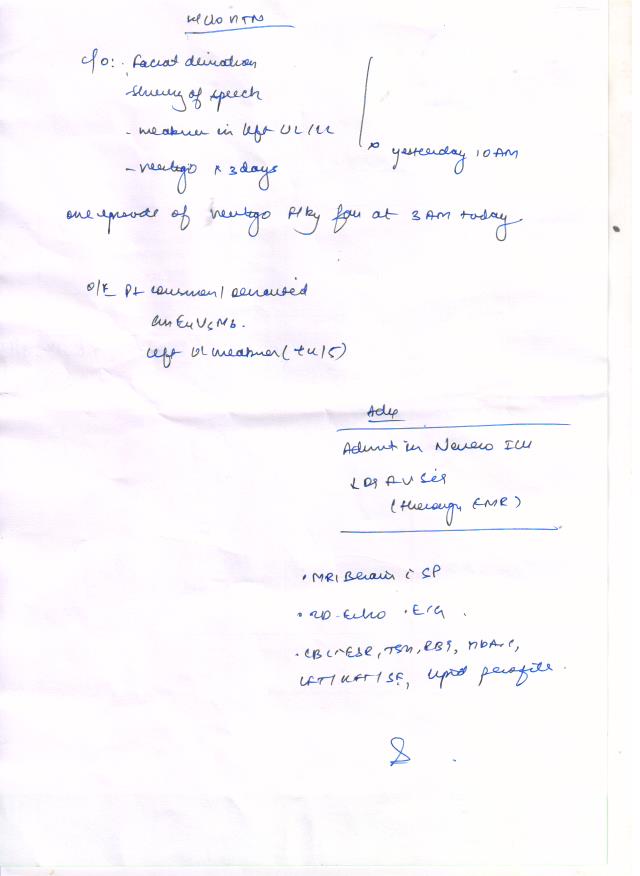 K/C/O HTN
C/O: - Facial deviation
- Slurring of speech
- weakness in left UL/LL
yesterday 10 AM
- vertigo x 3 days
one episode of vertigo f/by fall at 3 AM today
O/E Pt conscious/oriented
E4V5M6.
left UL weakness (+4/5)
Adv
Admit in Neuro ICU
(through EMR)
• MRI Brain c SP
• 2D-Echo • ECG.
• CBC, ESR, TSH, RBS, HbA1C,
LFT/KFT/SE, lipid profile.